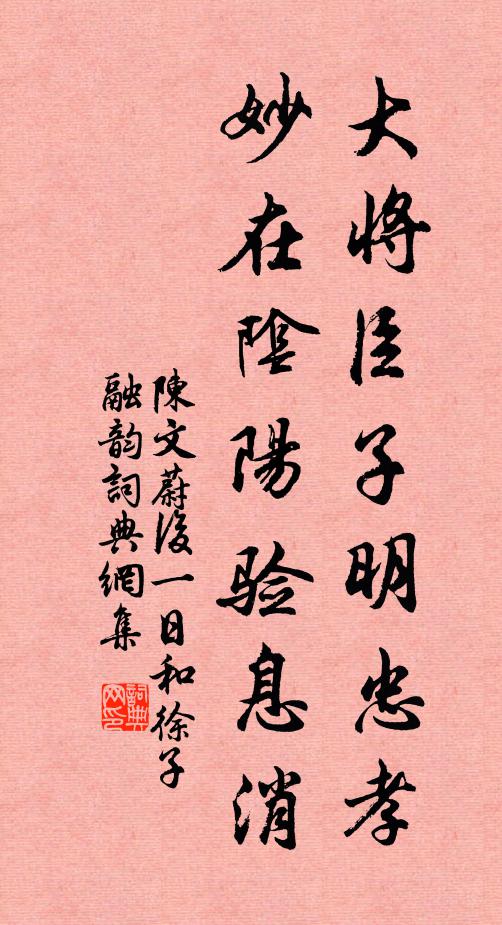 大將臣子明忠孝
妙在陰陽验息消
陳文蔚後一日和徐子
融韵詞典網集
詞典网印